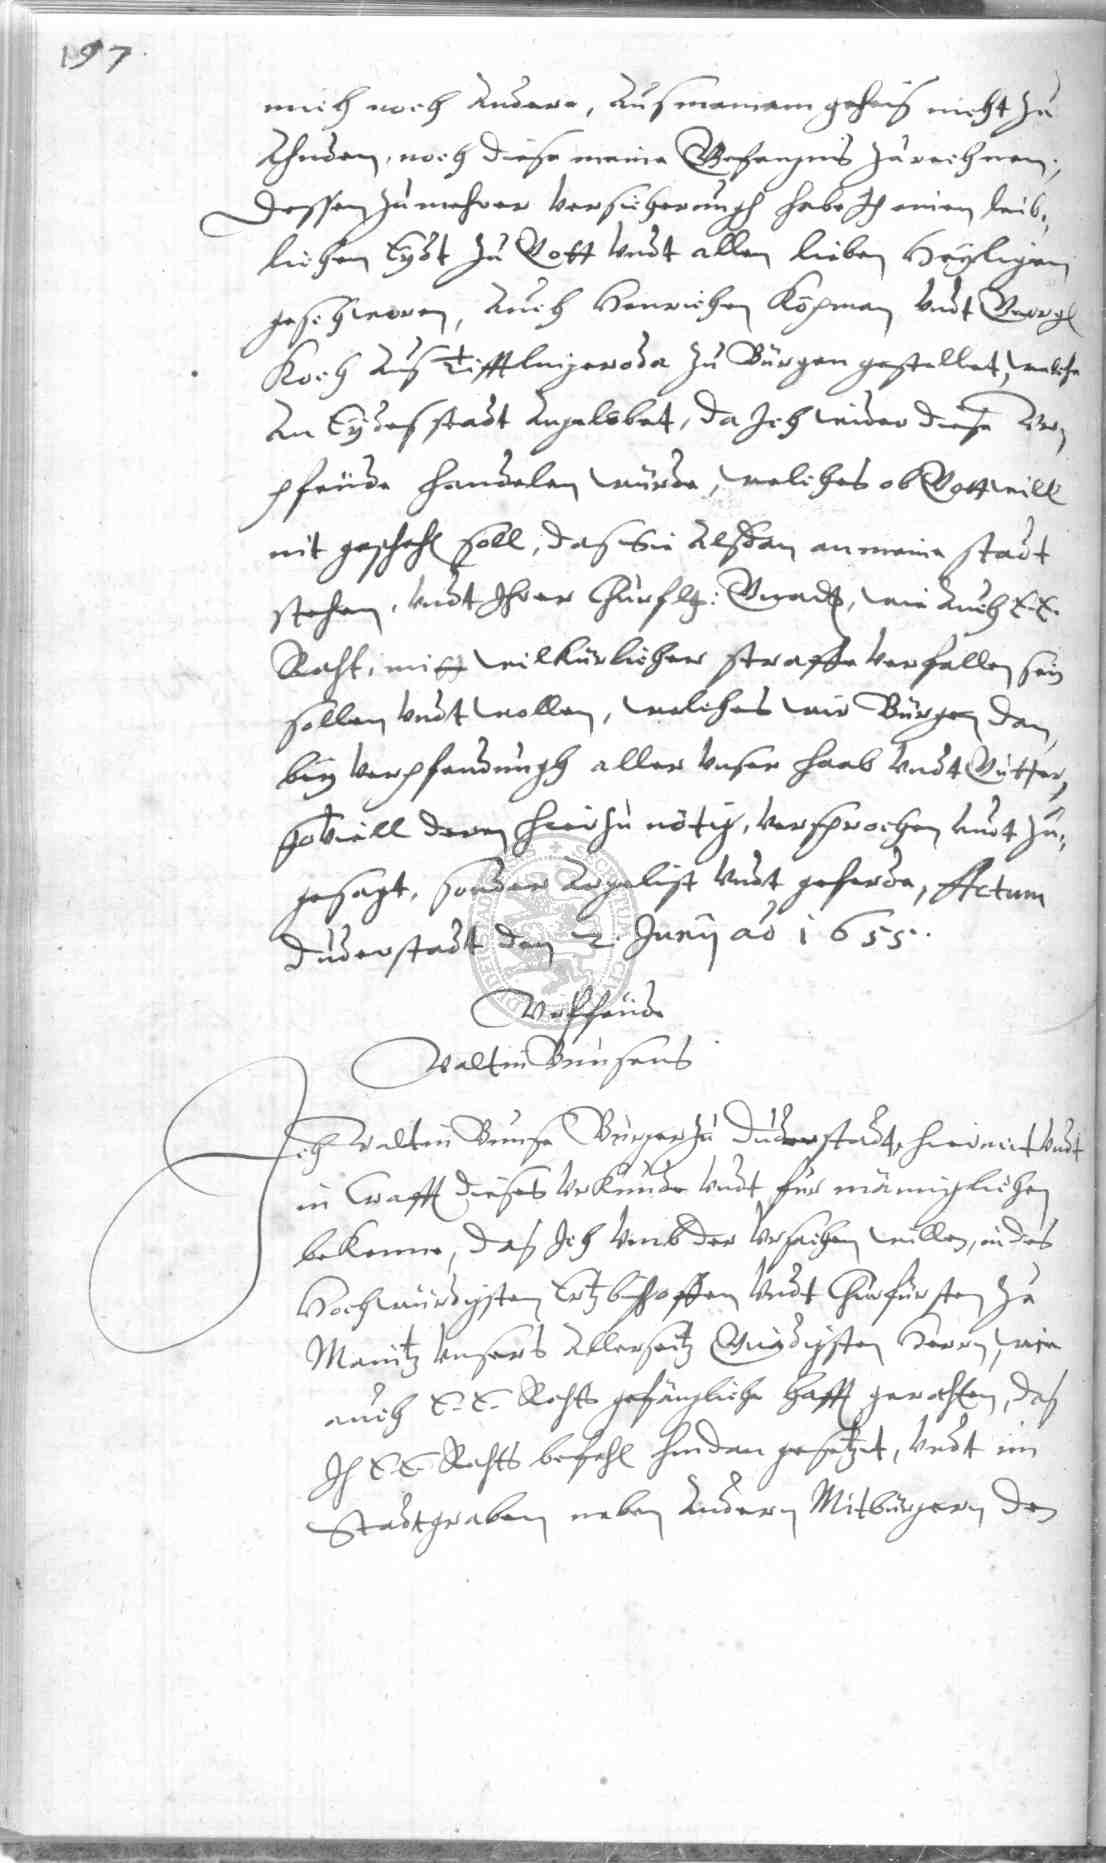 197.
mich noch Andere, Aus meinem geheis nicht zu
Ahnden, noch diese meine Gefengnis zu rechnen,
Dessen zu mehrer versicherungh habe Ich einen leib-
lichen Eydt zu Gott vndt allen lieben Heyligen
geschworen, Auch Henrichen Köpman vndt Georg
Koch Aus Tifftlingeroda zu Bürgen gestellet, welche
An Eydes stadt Angelobet, da Ich wider diese Vr-
pfeide handelen würde, welches ob Gott will
nit geschehen soll, das Sie Alsdan an meine stadt
stehen, vndt Ihrer Churfl: Gnad, wie Auch E. E.
Raht, mitt wilkürlicher straffe verfallen sein
sollen vndt wollen, welches wir Bürgen dan
bey verpfendungh aller vnser haab vndt Gütter,
so viell deren hierzu nötig, versprochen vndt zu-
gesagt, sonder Argelist vndt geferde, Actum
Duderstadt den 2. Junij ao 1655.
Vrpfeide
Valtin Bunsens
Ich Valtin Bunse Burger zu Duderstadt, hiermit vndt
in Crafft dieses Vrkunde vndt für männiglichen
bekenne, das Ich vmb der Vrsachen willen, in des
Hochwürdigsten Ertzbischoffen vndt Churfürsten zu
Maintz vnsers Allerseitz Gnädigsten Herrn, wie
auch E. E. Rahts gefängliche hafft gerahten, das
Ich E. E. Rahts befehl hindan gesetzet, vndt im
Stadtgraben neben Andern Mitbürgern den